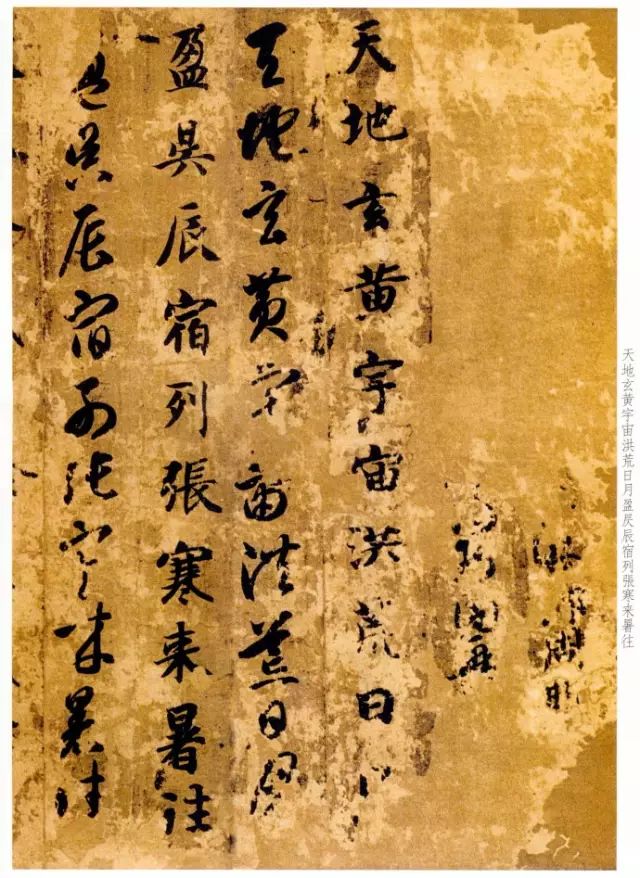 天地玄黄宇宙洪荒日月
天地玄黄宇宙洪荒日月
盈昃辰宿列張寒来暑往
盈昃辰宿列張寒来暑往
天地玄黄宇宙洪荒日月盈昃辰宿列張寒来暑往